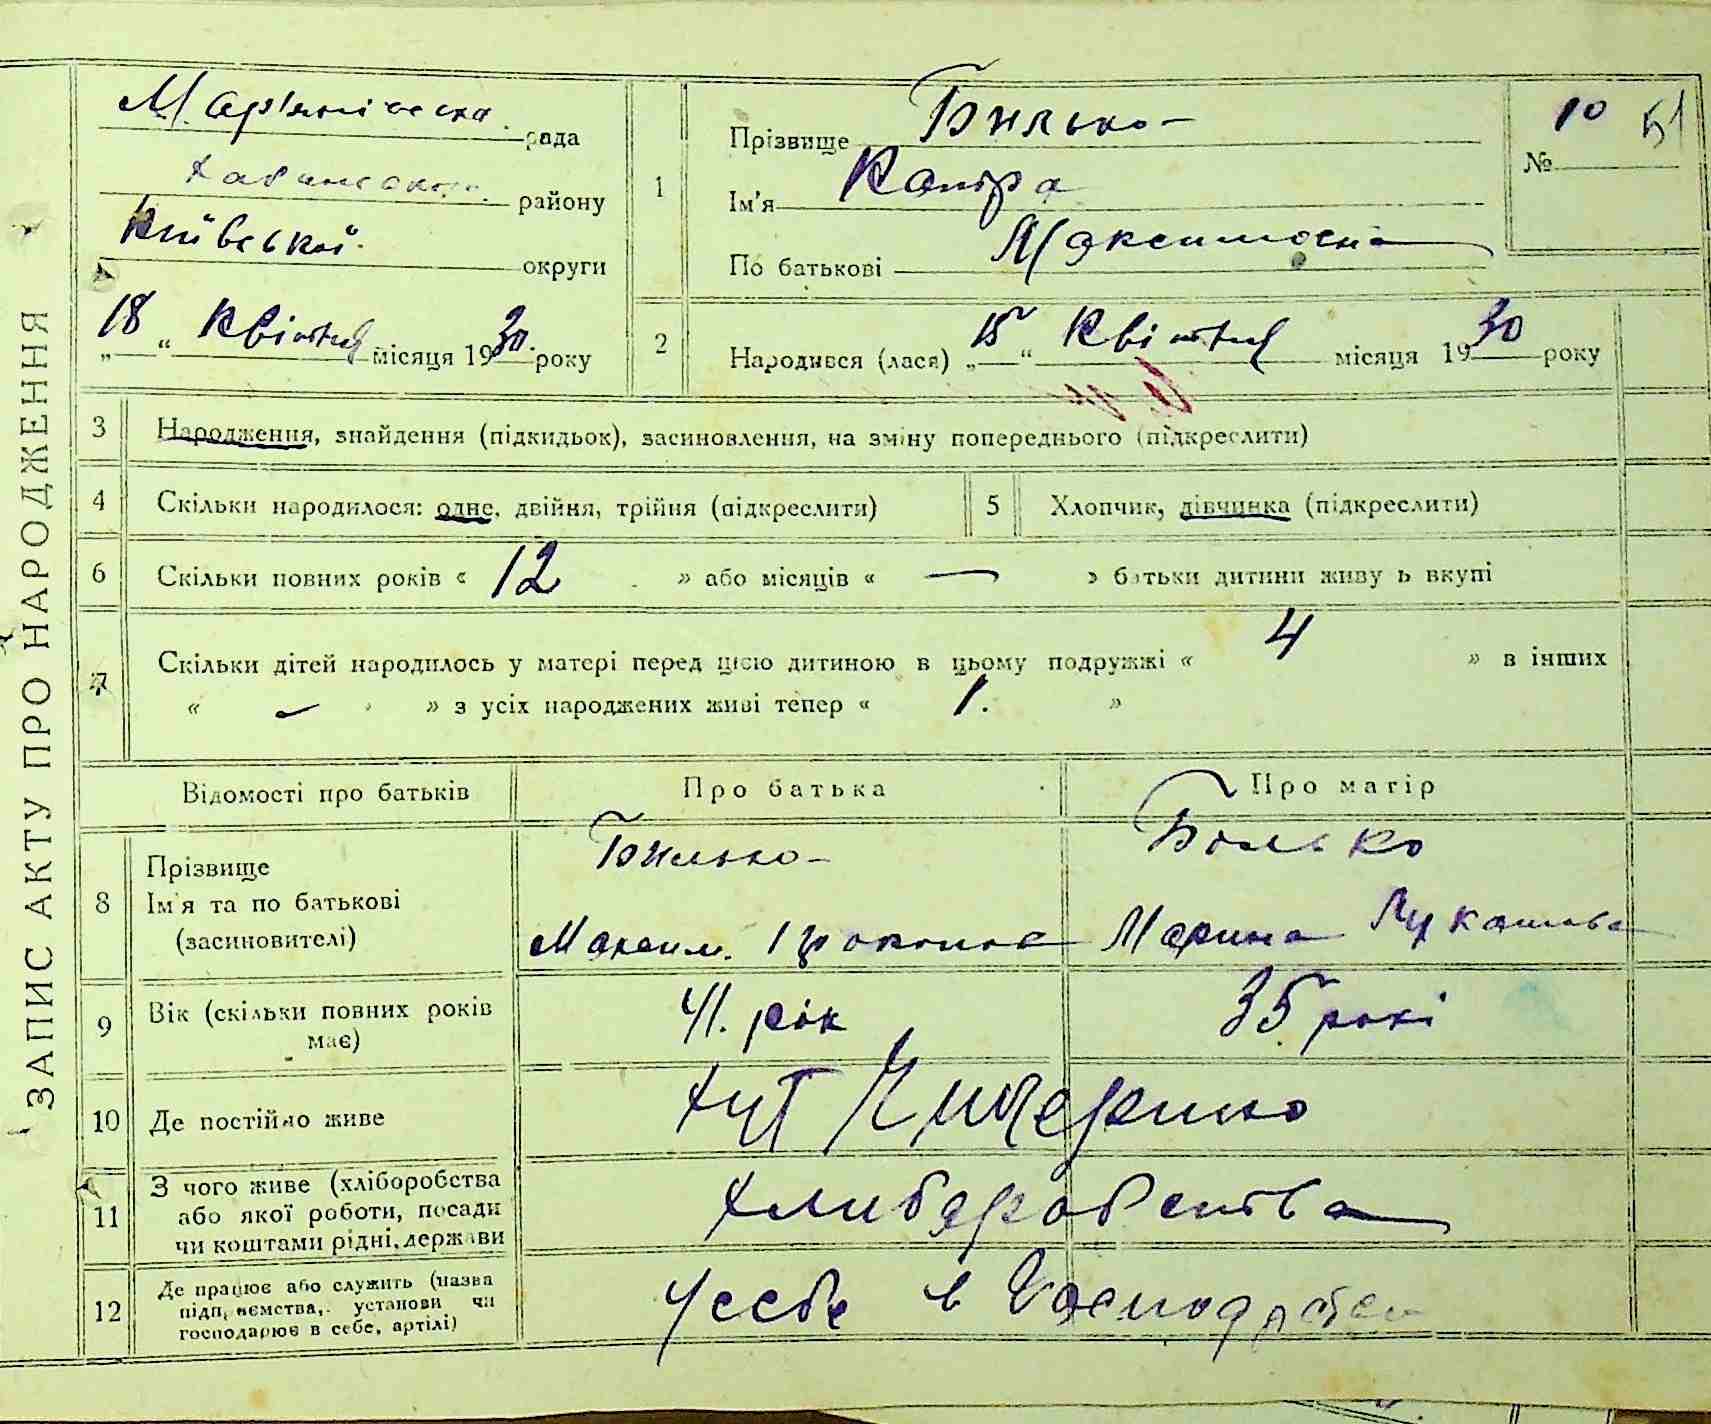 ЗАПИС АКТУ ПРО НАРОДЖЕННЯ
Мар'янівська рада
району
Київської округи
„18“ Квітня місяця 1930. року
1
Прізвище Билько
Ім'я Капра
По батькові Максимовна
№ 10 51
2
Народився (лася) „15“ Квітня місяця 1930 року
3 Народження, знайдення (підкидьок), засиновлення, на зміну попереднього (підкреслити)
4 Скільки народилося: одне, двійня, трійня (підкреслити)
5 Хлопчик, дівчинка (підкреслити)
6 Скільки повних років « 12 » або місяців « — » батьки дитини живуть вкупі
7 Скільки дітей народилось у матері перед цією дитиною в цьому подружжі « 4 » в інших
« — » з усіх народжених живі тепер « 1. »
Відомості про батьків
Про батька
Про матір
8 Прізвище
Ім'я та по батькові
(засиновителі)
Билько
Максим.
Билько
Марина Лукашова
9 Вік (скільки повних років
має)
41. рік
35 рокі
10 Де постійно живе
хут
11 З чого живе (хліборобства
або якої роботи, посади
чи коштами рідні, держави
хлибаробства
12 Де працює або служить (назва
підприємства, установи чи
господарює в себе, артілі)
У себе в Господарстві